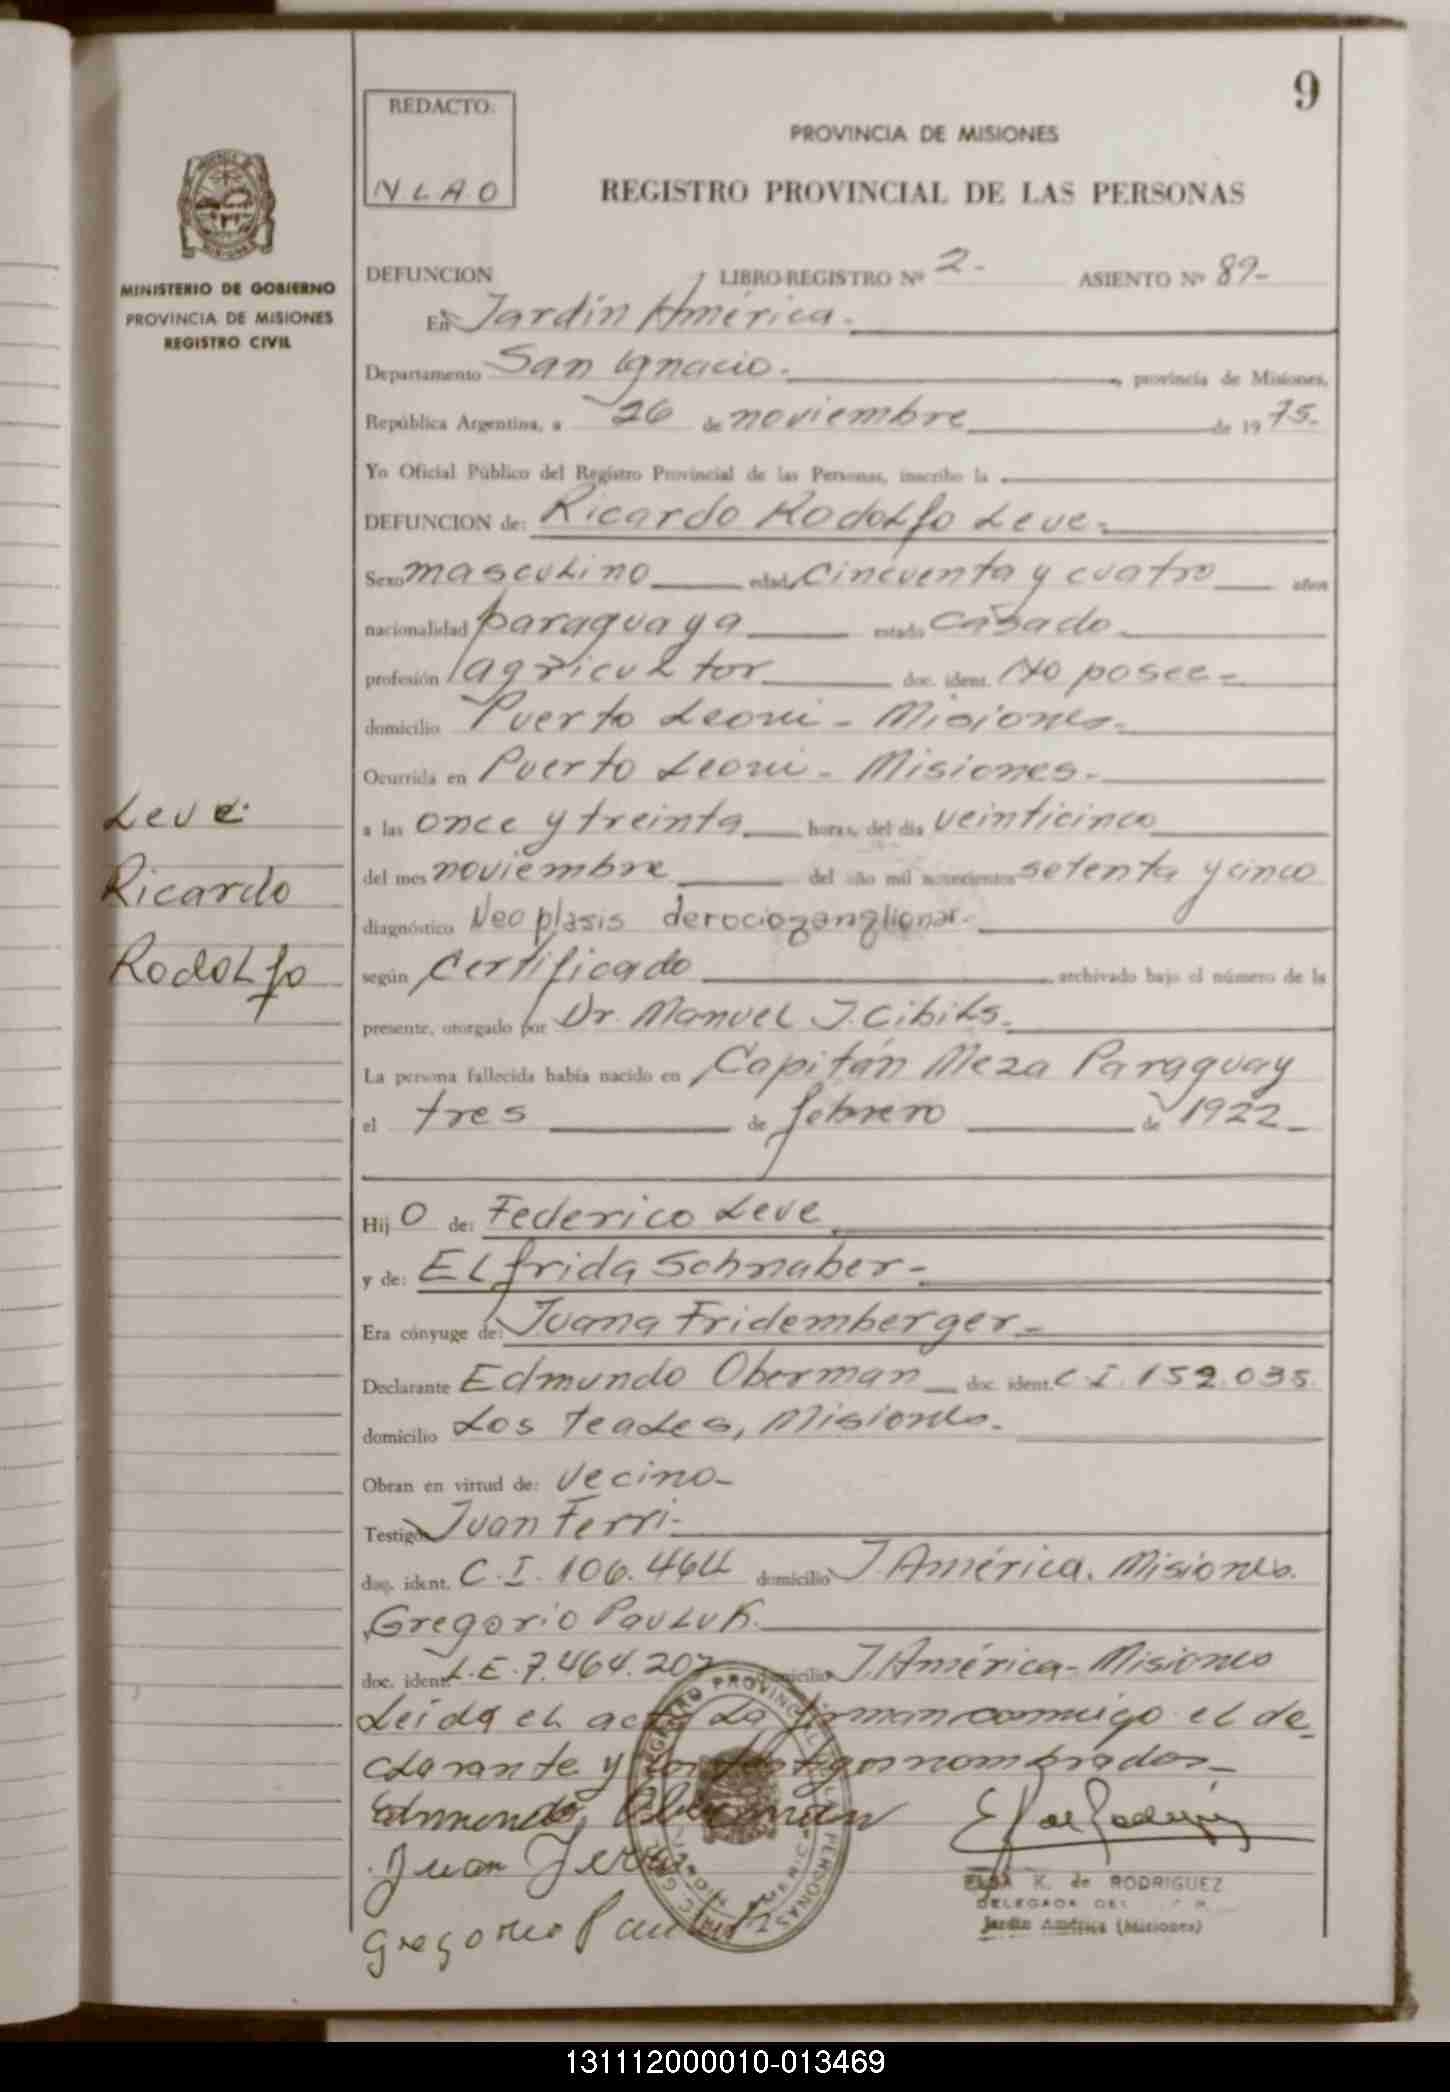 9
REDACTO:
N L A O
PROVINCIA DE MISIONES
REGISTRO PROVINCIAL DE LAS PERSONAS
MINISTERIO DE GOBIERNO
PROVINCIA DE MISIONES
REGISTRO CIVIL
DEFUNCION LIBRO-REGISTRO Nº 2- ASIENTO Nº 89-
En Jardín América.
Departamento San Ignacio. , provincia de Misiones,
República Argentina, a 26 de noviembre de 1975-
Yo Oficial Público del Registro Provincial de las Personas, inscribo la
DEFUNCION de: Ricardo Rodolfo Leve-
Sexo masculino edad cincuenta y cuatro años
nacionalidad paraguaya estado casado
profesión agricultor doc. ident. No posee-
domicilio Puerto Leoni - Misiones.
Ocurrida en Puerto Leoni - Misiones.
Leve
a las once y treinta horas, del día veinticinco
Ricardo
del mes noviembre del año mil novecientos setenta y cinco
diagnóstico Neoplasis
Rodolfo
según Certificado archivado bajo el número de la
presente, otorgado por Dr. Manuel J. Cibils.
La persona fallecida había nacido en Capitán Meza Paraguay
el tres de febrero de 1922-
Hijo de: Federico Leve
y de: Elfrida Schnaber-
Era cónyuge de: Juana Fridemberger-
Declarante Edmundo Oberman doc. ident. C I. 159.035.
domicilio Los Teales, Misiones.
Obran en virtud de: Vecino-
Testigos Juan Ferri-
doc. ident. C.I. 106.464 domicilio J. América. Misiones.
y Gregorio Pauluk.
doc. ident. L.E. 7.464.207 domicilio J. América - Misiones
Leída el acta la firman conmigo el de-
clarante y los testigos nombrados-
Edmundo Oberman
Juan Ferri
Gregorio Pauluk
REGISTRO PROVINCIAL DE LAS PERSONAS
ELSA K. de RODRIGUEZ
DELEGADA DEL
Jardín América (Misiones)
131112000010-013469